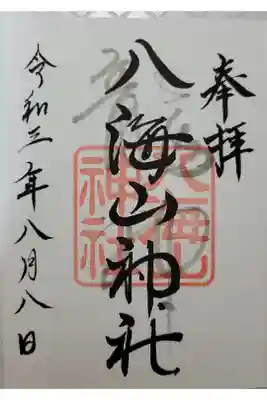 奉拝
八海山神社
令和三年八月八日